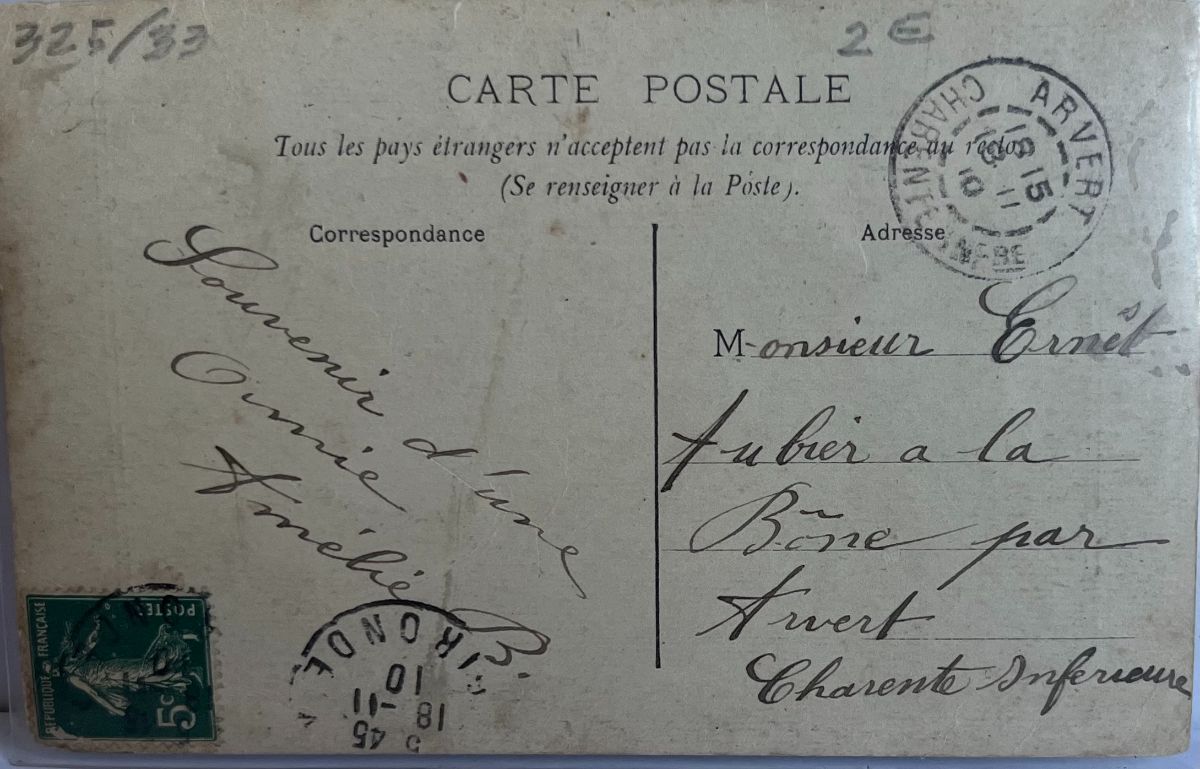 325/33
2€
CARTE POSTALE
Tous les pays étrangers n'acceptent pas la correspondance au recto
(Se renseigner à la Poste).
Correspondance
Adresse
ARVERT
CHARENTE INFRE
18 15
11
10
Souvenir d'une
Amie
Amélie B.
Monsieur Ernêst
Aubier a la
Bône par
Arvert
Charente Inferieure
REPUBLIQUE FRANÇAISE
POSTES
5c
GIRONDE
45
18 -11
10